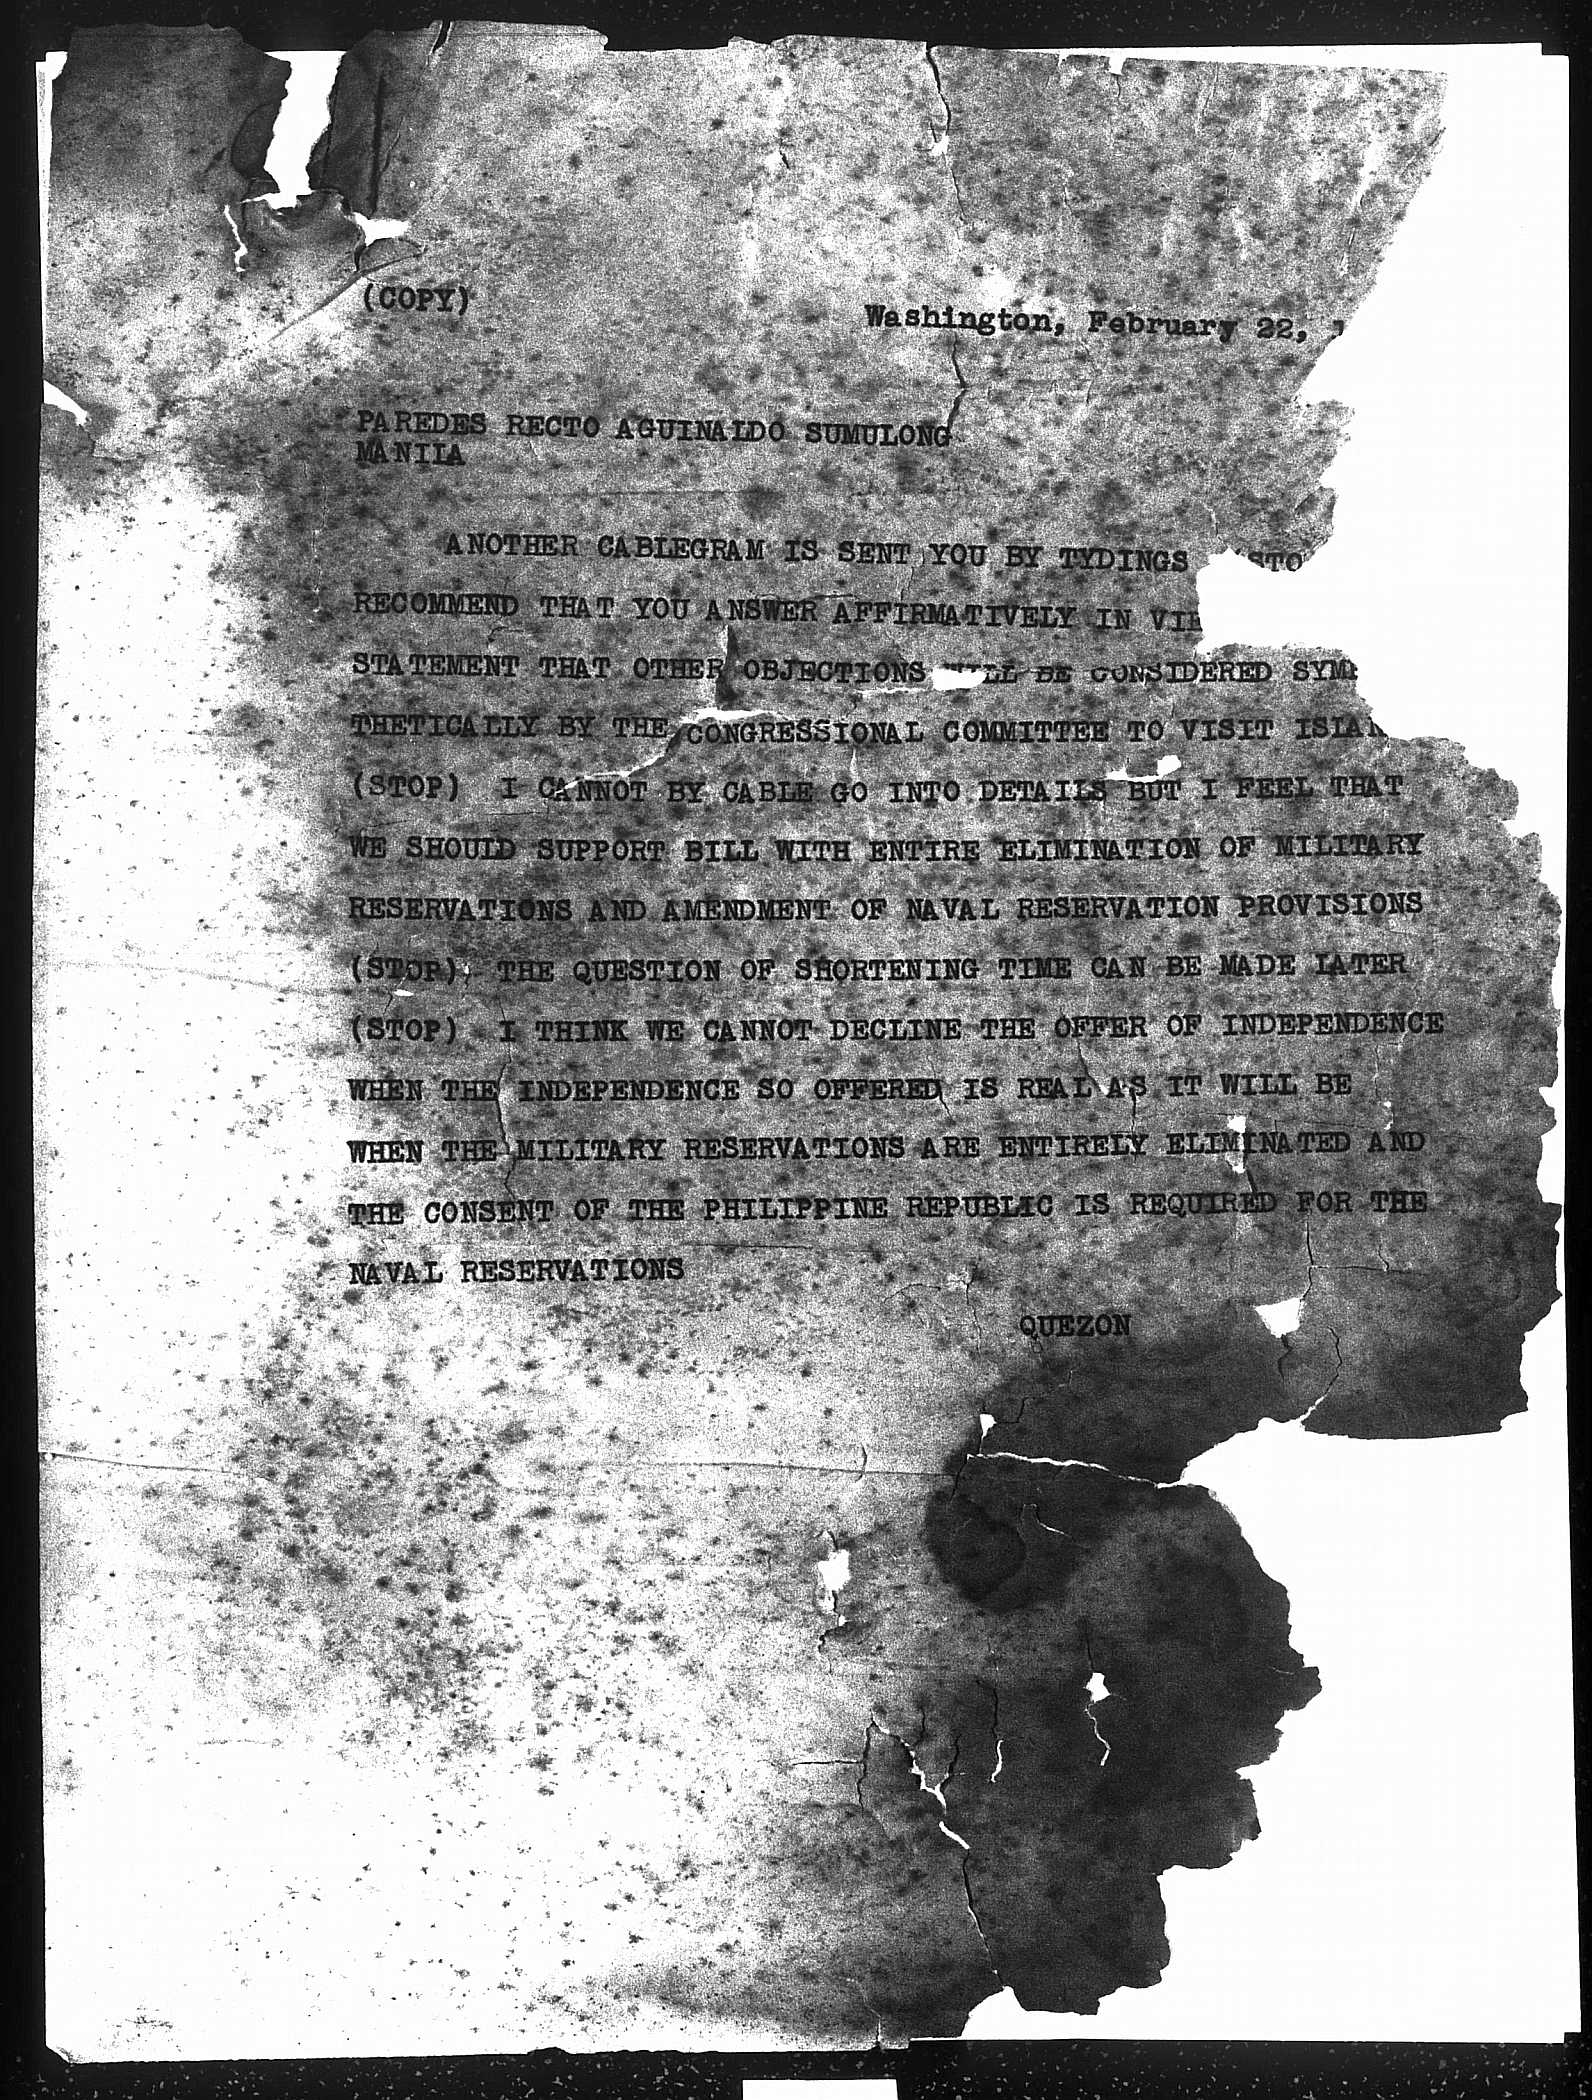 (COPY)
Washington, February 22,
PAREDES RECTO AGUINALDO SUMULONG
MANILA
ANOTHER CABLEGRAM IS SENT YOU BY TYDINGS (STO
RECOMMEND THAT YOU ANSWER AFFIRMATIVELY IN VIE
STATEMENT THAT OTHER OBJECTIONS WILL BE CONSIDERED SYM
THETICALLY BY THE CONGRESSIONAL COMMITTEE TO VISIT ISLAN
(STOP) I CANNOT BY CABLE GO INTO DETAILS BUT I FEEL THAT
WE SHOULD SUPPORT BILL WITH ENTIRE ELIMINATION OF MILITARY
RESERVATIONS AND AMENDMENT OF NAVAL RESERVATION PROVISIONS
(STOP) THE QUESTION OF SHORTENING TIME CAN BE MADE LATER
(STOP) I THINK WE CANNOT DECLINE THE OFFER OF INDEPENDENCE
WHEN THE INDEPENDENCE SO OFFERED IS REAL AS IT WILL BE
WHEN THE MILITARY RESERVATIONS ARE ENTIRELY ELIMINATED AND
THE CONSENT OF THE PHILIPPINE REPUBLIC IS REQUIRED FOR THE
NAVAL RESERVATIONS
QUEZON